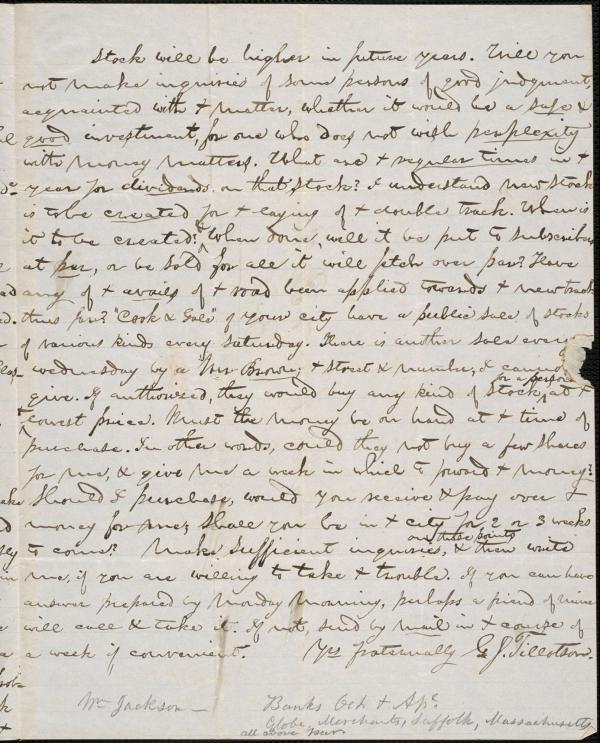 stock will be higher in future years. Will you
not make inquiries of some persons of good judgment,
acquainted with + matter, whether it would be a safe &
good investment, for one who does not wish perplexity
with money matters. What are + regular times in +
year for dividends on that stock? I understand new stock
is to be created for + laying of + double track. When is
it to be created? When done, will it be put to subscribers
at par, or be sold for all it will fetch over par? Have
any of + avails of + road been applied towards + new track
thus far? "Cook & of your city have a public sale of stocks
of various kinds every Saturday. There is another sale every
wednesday by a Mr Brown; + street & number, I cannot
give. If authorized, they would buy any kind of stock, for a person at +
lowest price. Must the money be on hand at + time of
purchase. In other words, could they not buy a few shares
for me, & give me a week in which to forward + money?
Should I purchase, would you receive & pay over +
money for me; Shall you be in + city for 2 or 3 weeks
to come? Make sufficient inquiries, on these points & then write
me, if you are willing to take + trouble. If you can have
answer prepared by monday morning, perhaps a friend of mine
will call & take it. If not, send by mail in + course of
a week if convenient. Yrs fraternally G. J. Tillotson.
Wm Jackson — Banks Oct + Apl.
Globe, Merchants, Suffolk, Massachusetts
all above par.